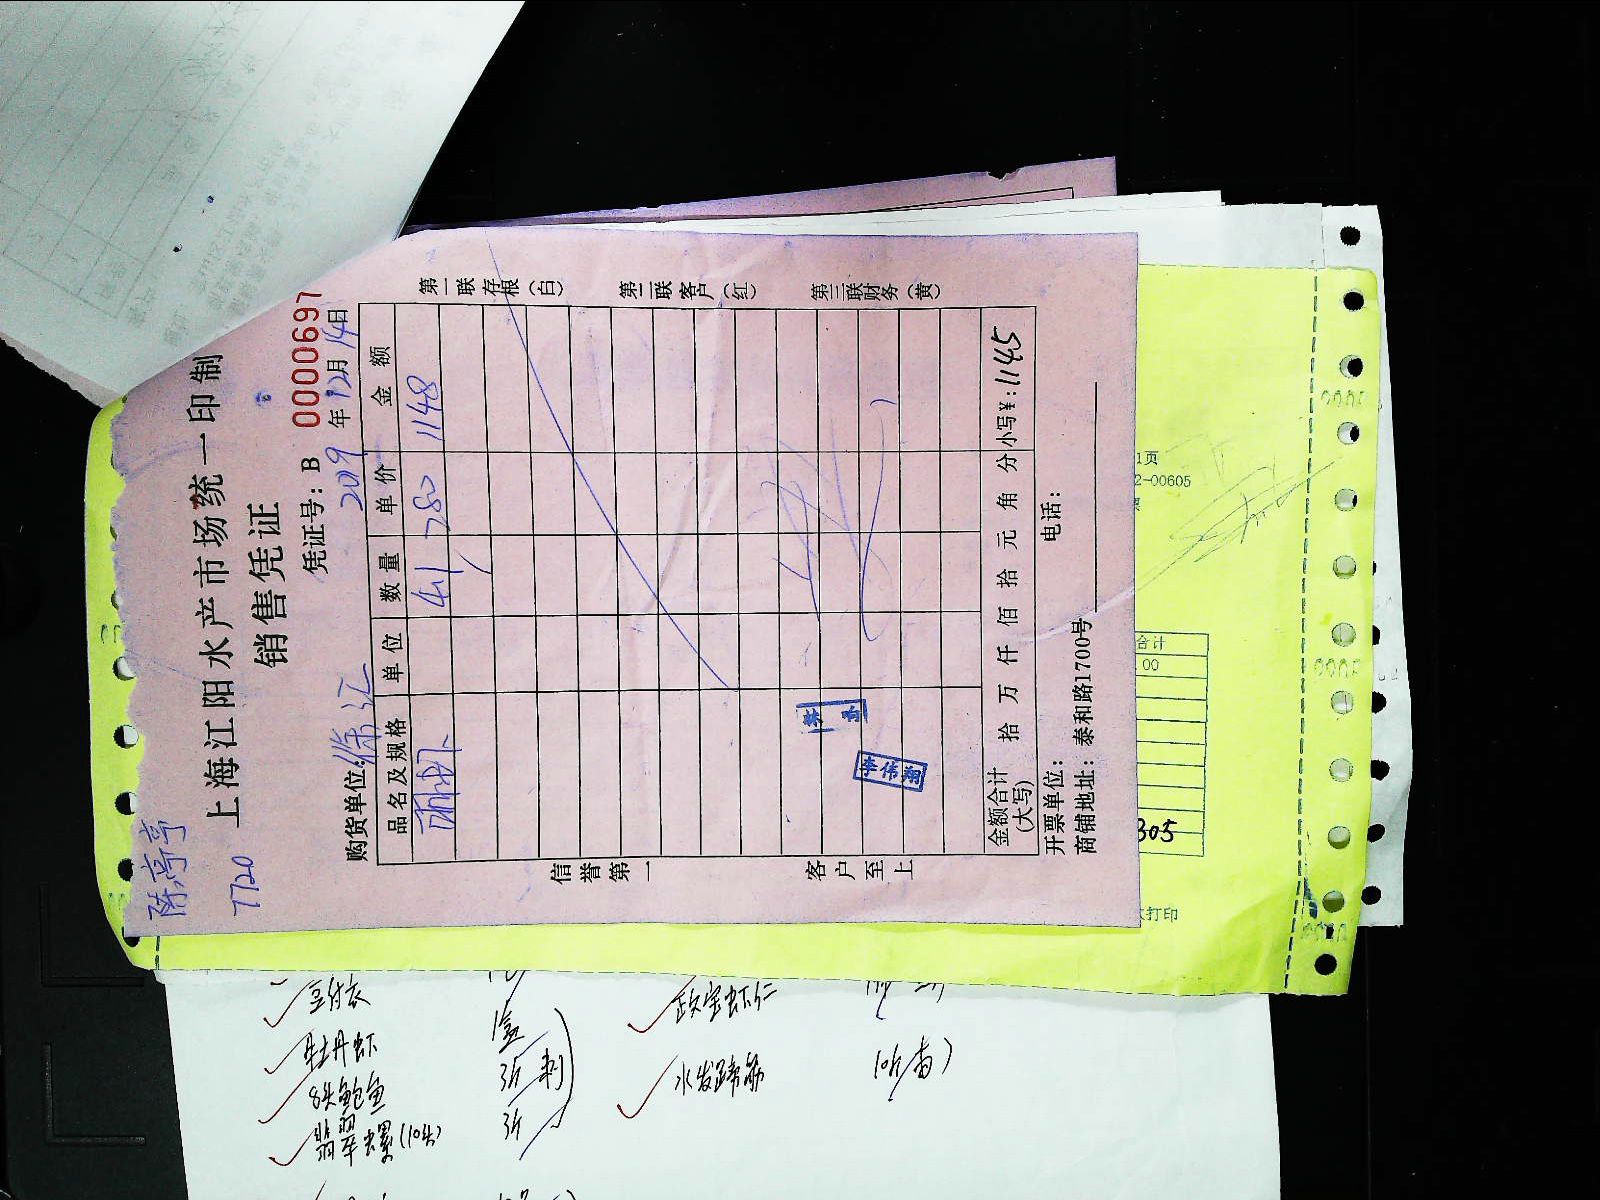 陈亭亭
7720
上海江阳水产市场统一印制
销售凭证
凭证号：B 0000697
购货单位：徐汇 2019年12月14日
品名及规格 单位 数量 单价 金额
4.1 280 1148
金额合计(大写) 拾 万 仟 佰 拾 元 角 分 小写￥：1145
开票单位： 电话：
商铺地址：泰和路1700号
信誉第一
客户至上
第一联存根（白）
第二联客户（红）
第三联财务（黄）
李伟翔
1页
2-00605
合计
.00
305
打印
豆付衣
牡丹虾 1盒
8头鲍鱼 3斤 刺
翡翠螺(10头) 3斤
虾仁
水发蹄筋 10斤